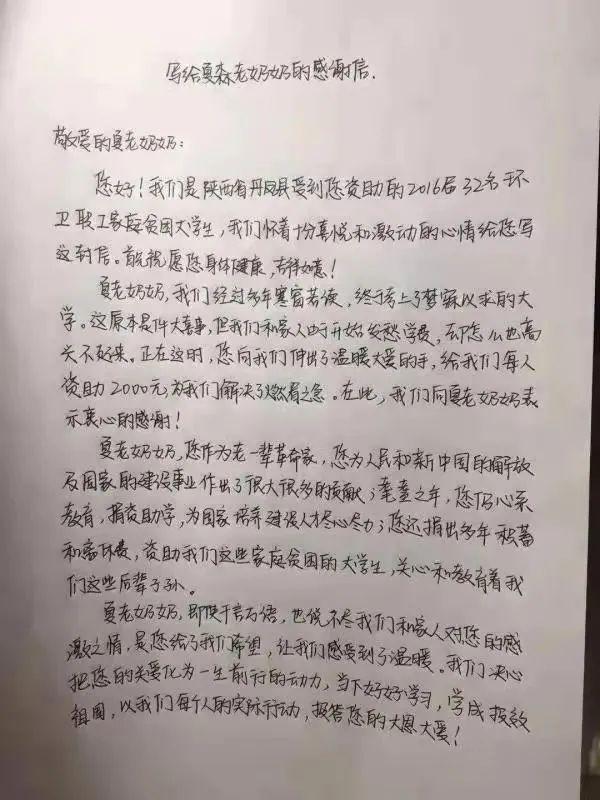 写给夏森老奶奶的感谢信.
敬爱的夏老奶奶：
您好！我们是陕西省丹凤县受到您资助的2016届32名环
卫职工家庭贫困大学生，我们怀着十分喜悦和激动的心情给您写
这封信。首先祝愿您身体健康，吉祥如意！
夏老奶奶，我们经过多年寒窗苦读，终于考上了梦寐以求的大
学。这原本是件大喜事，但我们和家人由于开始发愁学费，却怎么也高
兴不起来。正在这时，您向我们伸出了温暖大爱的手，给我们每人
资助2000元，为我们解决了燃眉之急。在此，我们向夏老奶奶表
示衷心的感谢！
夏老奶奶，您作为老一辈革命家，您为人民和新中国的解放
及国家的建设事业作出了很大很多的贡献；耄耋之年，您仍心系
教育，捐资助学，为国家培养建设人才尽心尽力；您还捐出多年积蓄
和离休费，资助我们这些家庭贫困的大学生，关心和教育着我
们这些后辈子孙。
夏老奶奶，即使千言万语，也说不尽我们和家人对您的感
激之情，是您给了我们希望，让我们感受到了温暖。我们决心
把您的关爱化为一生前行的动力，当下好好学习，学成报效
祖国，以我们每个人的实际行动，报答您的大恩大爱！